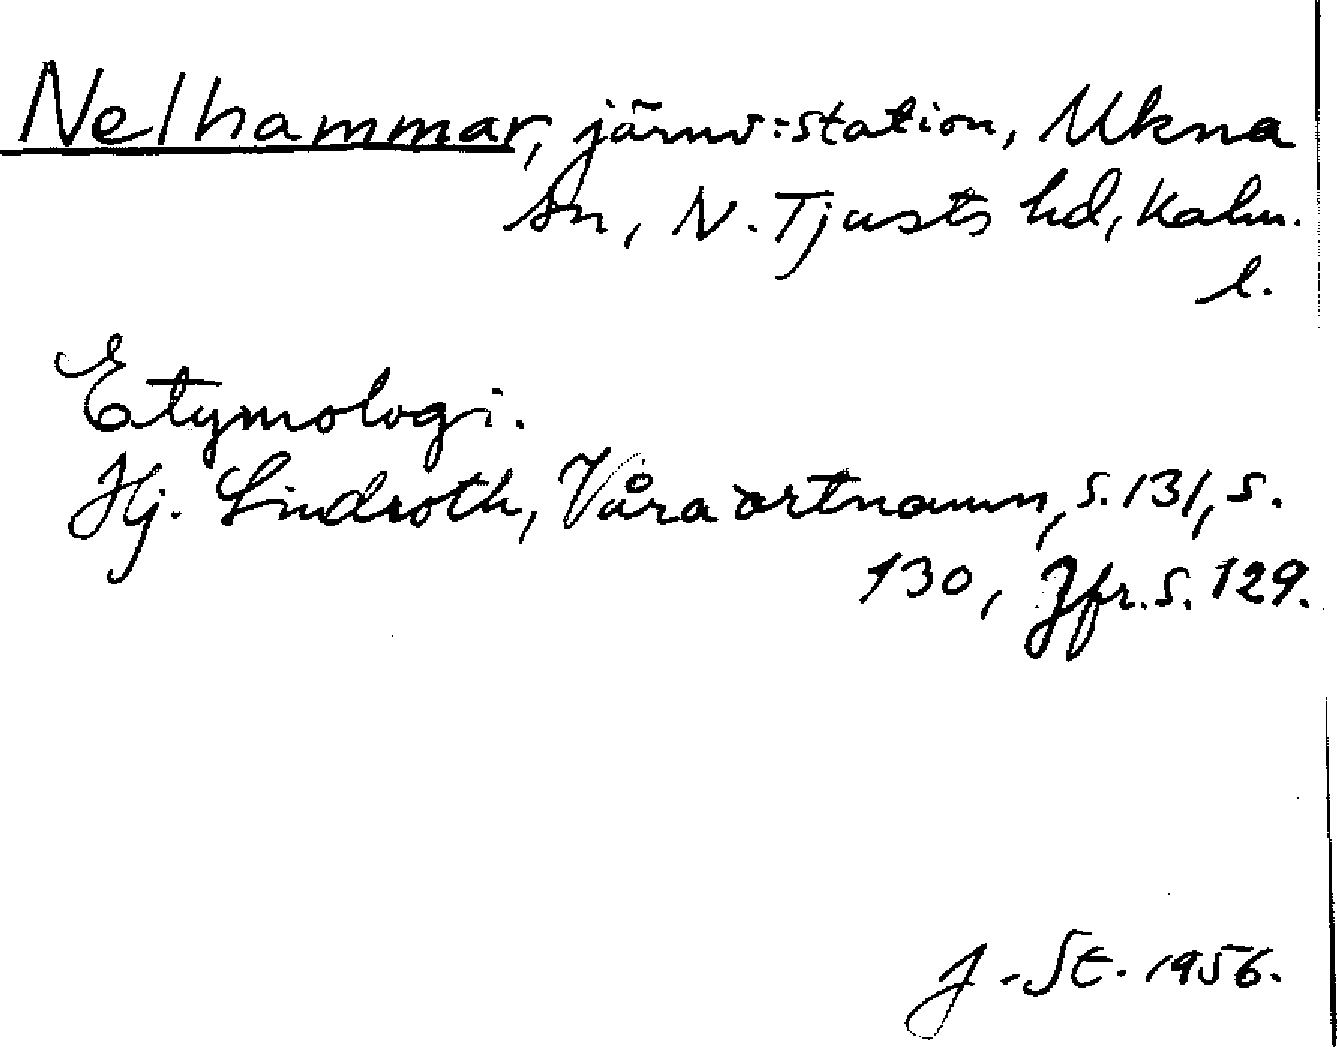 Nelhammar, järnv:station, Ukna
sn, N. Tjusts hd, Kalm.
l.
Etymologi.
Hj. Lindroth, Våra ortnamn, s. 131, s.
130, Jfr. s. 129.
J-St. 1956.